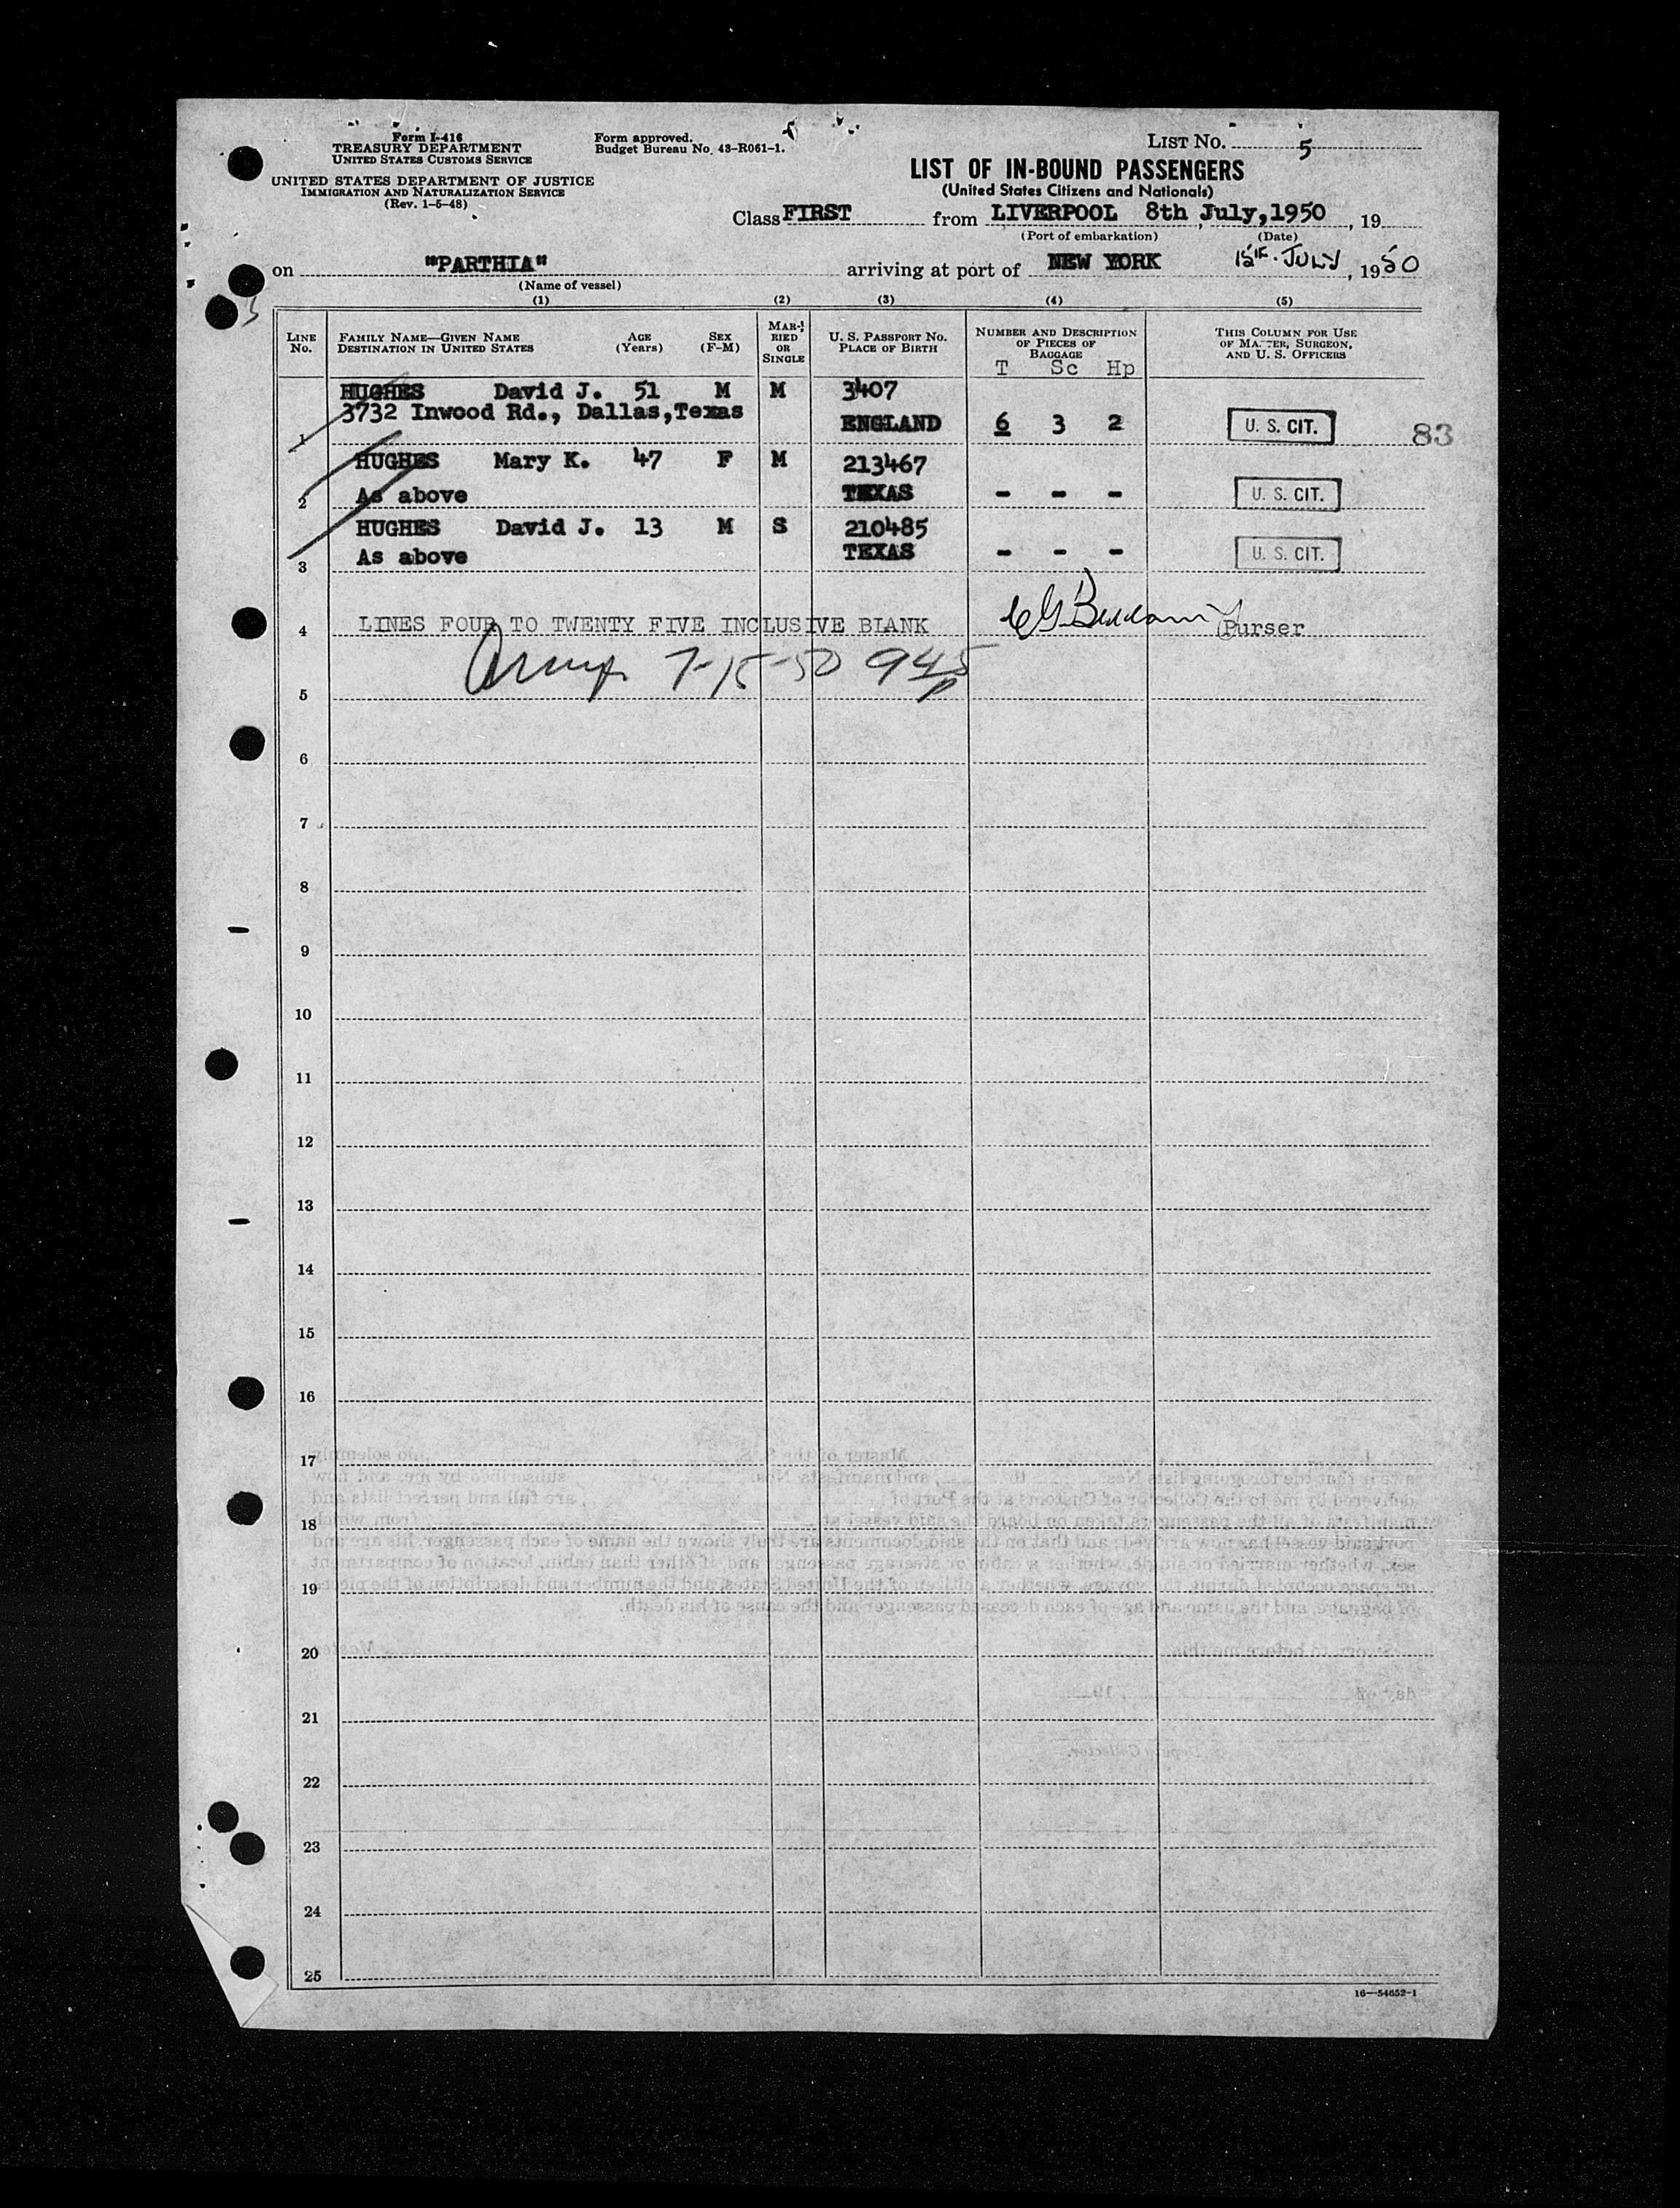 Form I-416
TREASURY DEPARTMENT
UNITED STATES CUSTOMS SERVICE
UNITED STATES DEPARTMENT OF JUSTICE
IMMIGRATION AND NATURALIZATION SERVICE
(Rev. 1-5-48)
Form approved.
Budget Bureau No. 43-R061-1.
LIST NO. 5
LIST OF IN-BOUND PASSENGERS
(United States Citizens and Nationals)
Class FIRST from LIVERPOOL 8th July, 1950, 19
(Port of embarkation) (Date)
on "PARTHIA" arriving at port of NEW YORK 15th. JULY, 1950
(Name of vessel)
(1) (2) (3) (4) (5)
LINE NO. FAMILY NAME—GIVEN NAME DESTINATION IN UNITED STATES AGE (Years) SEX (F-M) MAR-RIED OR SINGLE U. S. PASSPORT NO. PLACE OF BIRTH NUMBER AND DESCRIPTION OF PIECES OF BAGGAGE THIS COLUMN FOR USE OF MASTER, SURGEON, AND U. S. OFFICERS
T Sc Hp
HUGHES David J. 51 M M 3407
3732 Inwood Rd., Dallas, Texas
1 ENGLAND 6 3 2 U. S. CIT. 83
HUGHES Mary K. 47 F M 213467
2 As above TEXAS - - - U. S. CIT.
HUGHES David J. 13 M S 210485
3 As above TEXAS - - - U. S. CIT.
4 LINES FOUR TO TWENTY FIVE INCLUSIVE BLANK Purser
7-15-50 945p
5
6
7
8
9
10
11
12
13
14
15
16
17
18
19
20
21
22
23
24
25
16—54652-1